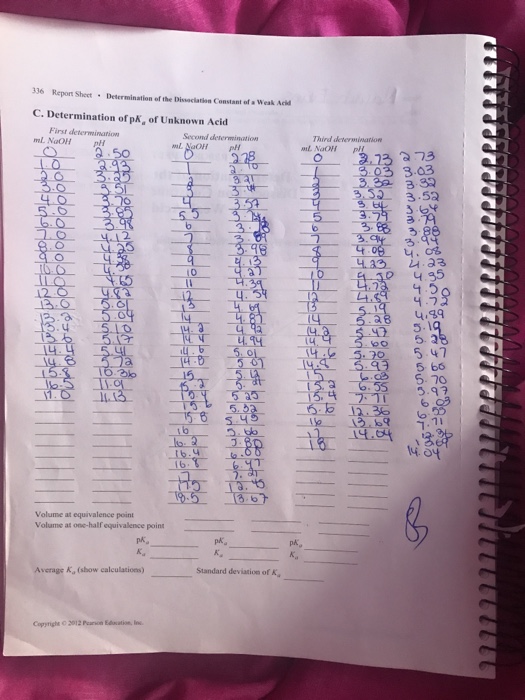 336 Report Sheet • Determination of the Dissociation Constant of a Weak Acid
C. Determination of pKa of Unknown Acid
First determination Second determination Third determination
mL NaOH pH mL NaOH pH mL NaOH pH
0 2.50 0 2.78 0 2.73 2.73
1.0 1 1 3.03 3.03
2.0 2 3.32
3.0 3.51 3 3.52 3.52
4.0 3.70 4 3.57 3.64
5.0 5.5 5 3.79
6.0 6 6 3.88 3.88
7.0 4.12 7 7 3.94 3.94
8.0 4.25 8 3.98 4.08
9.0 9 4.13 4.23 4.23
10.0 10 4.27 10 4.35
11.0 4.65 11 4.39 4.72 4.50
12.0 4.82 12 4.54 12 4.89 4.72
13.0 5.01 13 13 5.19 4.89
5.04 14 14 5.28 5.19
13.4 5.10 14.2 4.92 14.2 5.47 5.28
13.6 5.17 14.4 4.94 14.4 5.60 5.47
14.4 5.41 14.6 5.01 14.6 5.70 5.60
14.8 14.8 5.07 14.8 5.97 5.70
15.8 10.36 15 15 6.03 5.97
16.5 11.01 15.2 5.21 15.2 6.55 6.03
17.0 11.13 15.4 5.25 15.4 7.71 6.55
15.6 5.32 12.36 7.71
15.8 5.45 16 13.69 12.36
16 5.66 17 14.04
16.2 18 14.04
16.4 6.08
16.8 6.47
17
17.5 12.45
18.5 13.67
Volume at equivalence point
Volume at one-half equivalence point
pKa pKa pKa
Ka Ka Ka
Average Ka (show calculations) Standard deviation of Ka
Copyright © 2012 Pearson Education, Inc.